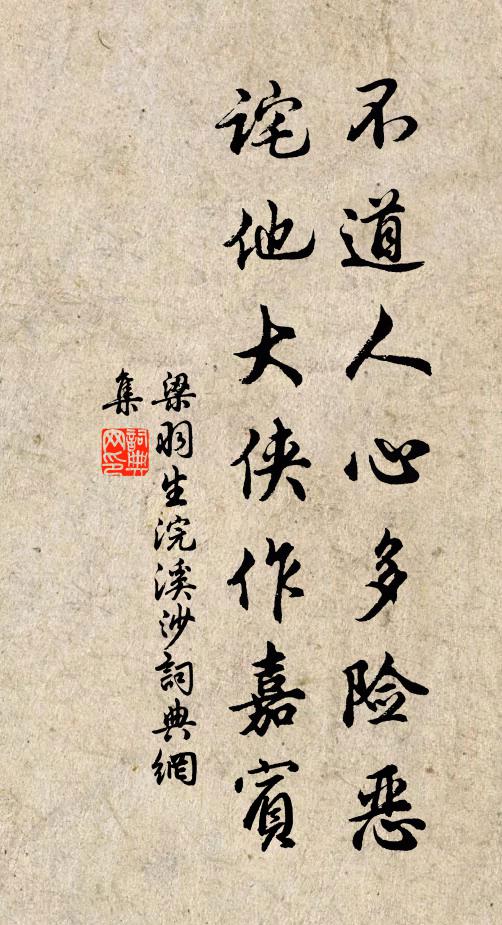 不道人心多险恶
诧他大侠作嘉賓
梁羽生浣溪沙詞典網
集
詞典
网印